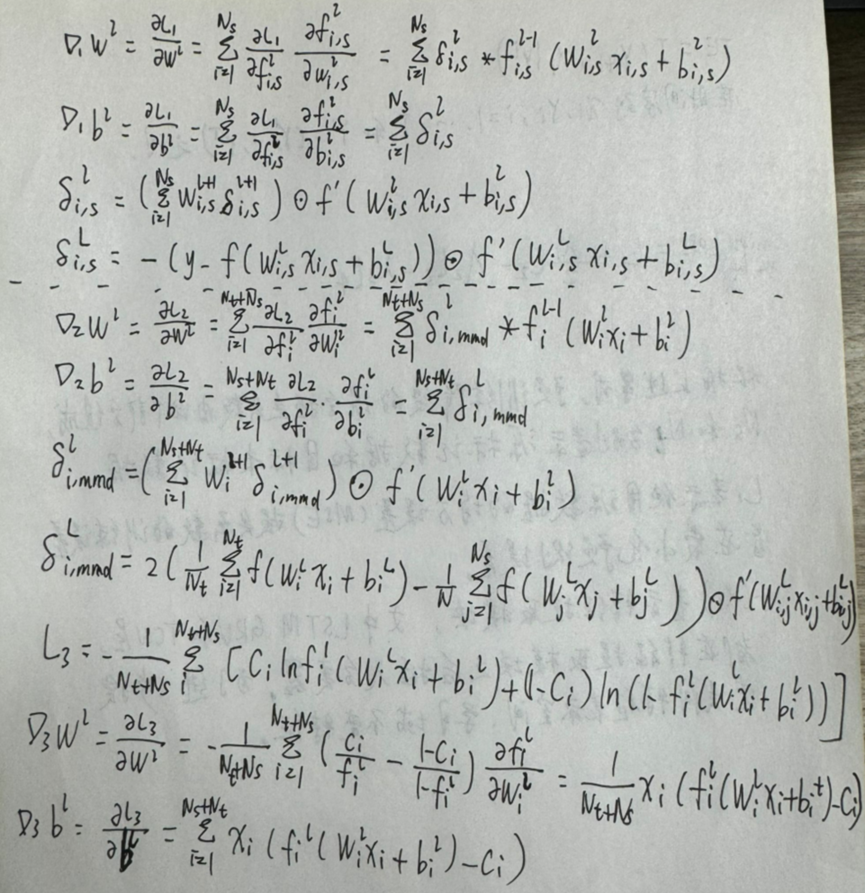 D₁W^l = ∂L₁/∂W^l = Σ_{i=1}^{Ns} ∂L₁/∂f_{i,s}^l ∂f_{i,s}^l/∂w_{i,s}^l = Σ_{i=1}^{Ns} δ_{i,s}^l * f_{i,s}^{l-1} (W_{i,s}^l x_{i,s} + b_{i,s}^l)
D₁b^l = ∂L₁/∂b^l = Σ_{i=1}^{Ns} ∂L₁/∂f_{i,s}^l ∂f_{i,s}^l/∂b_{i,s}^l = Σ_{i=1}^{Ns} δ_{i,s}^l
δ_{i,s}^l = (Σ_{i=1}^{Ns} W_{i,s}^{l+1} δ_{i,s}^{l+1}) ⊙ f'(W_{i,s}^l x_{i,s} + b_{i,s}^l)
δ_{i,s}^L = -(y - f(W_{i,s}^L x_{i,s} + b_{i,s}^L)) ⊙ f'(W_{i,s}^L x_{i,s} + b_{i,s}^L)
D₂W^l = ∂L₂/∂W^l = Σ_{i=1}^{Nt+Ns} ∂L₂/∂f_i^l ∂f_i^l/∂W_i^l = Σ_{i=1}^{Nt+Ns} δ_{i,mmd}^l * f_i^{l-1} (W_i^l x_i + b_i^l)
D₂b^l = ∂L₂/∂b^l = Σ_{i=1}^{Ns+Nt} ∂L₂/∂f_i^l · ∂f_i^l/∂b_i^l = Σ_{i=1}^{Ns+Nt} δ_{i,mmd}^l
δ_{i,mmd}^l = (Σ_{i=1}^{Ns+Nt} W_i^{l+1} δ_{i,mmd}^{l+1}) ⊙ f'(W_i^l x_i + b_i^l)
δ_{i,mmd}^L = 2(1/Nt Σ_{i=1}^{Nt} f(W_i^L x_i + b_i^L) - 1/N Σ_{j=1}^{Ns} f(W_j^L x_j + b_j^L)) ⊙ f'(W_{i,j}^L x_{i,j} + b_{i,j}^L)
L₃ = -1/(Nt+Ns) Σ_i^{Nt+Ns} [C_i ln f_i^L (W_i^L x_i + b_i^L) + (1-C_i) ln (1-f_i^L (W_i^L x_i + b_i^L))]
D₃W^l = ∂L₃/∂W^l = -1/(Nt+Ns) Σ_{i=1}^{Nt+Ns} (C_i/f_i^L - (1-C_i)/(1-f_i^L)) ∂f_i^L/∂W_i^L = 1/(Nt+Ns) x_i (f_i^L (W_i^L x_i + b_i^t) - C_i)
D₃b^l = ∂L₃/∂b^l = Σ_{i=1}^{Ns+Nt} x_i (f_i^L (W_i^L x_i + b_i^L) - C_i)